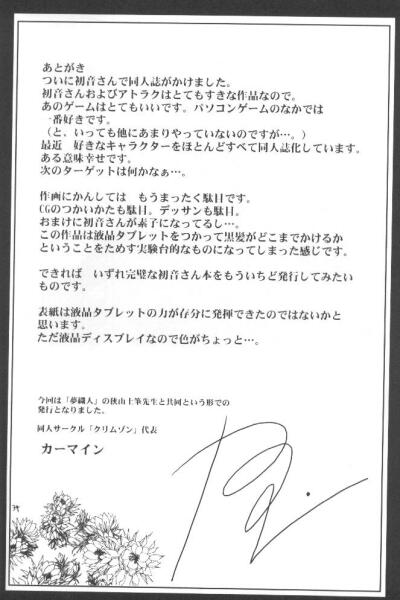 あとがき
ついに初音さんで同人誌がかけました。
初音さんおよびアトラクはとてもすきな作品なので。
あのゲームはとてもいいです。パソコンゲームのなかでは
一番好きです。
(と、いっても他にあまりやっていないのですが…。)
最近　好きなキャラクターをほとんどすべて同人誌化しています。
ある意味幸せです。
次のターゲットは何かなぁ…。
作画にかんしては　もうまったく駄目です。
CGのつかいかたも駄目。デッサンも駄目。
おまけに初音さんが素子になってるし…。
この作品は液晶タブレットをつかって黒髪がどこまでかけるか
ということをためす実験台的なものになってしまった感じです。
できれば　いずれ完璧な初音さん本をもういちど発行してみたい
ものです。
表紙は液晶タブレットの力が存分に発揮できたのではないかと
思います。
ただ液晶ディスプレイなので色がちょっと…。
今回は「夢織人」の秋山上筆先生と共同という形での
発行となりました。
同人サークル「クリムゾン」代表
カーマイン
39